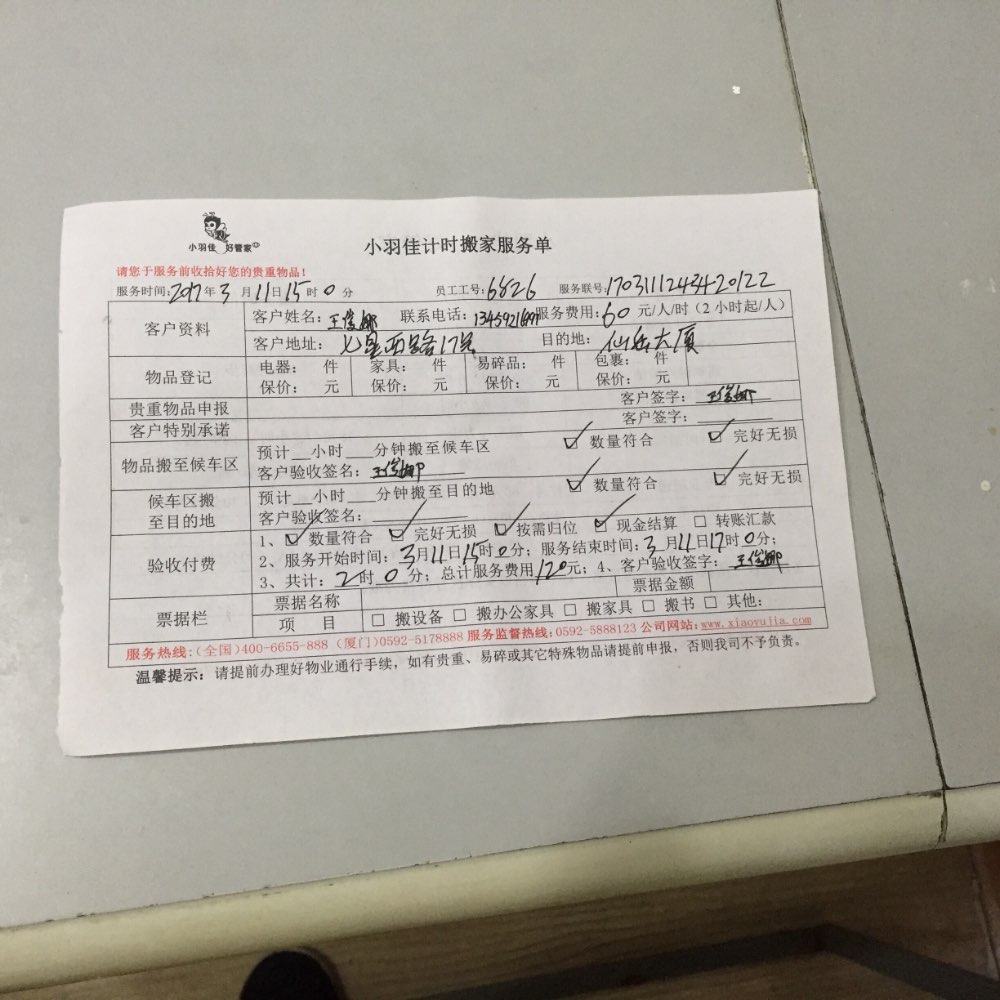 小羽佳 好管家
小羽佳计时搬家服务单
请您于服务前收拾好您的贵重物品！
服务时间：2017年3月11日15时0分 员工工号：6826 服务联号：1703111243420122
客户资料 客户姓名：王俊娜 联系电话： 服务费用：60元/人/时（2小时起/人）
客户地址：七星西路17号 目的地：仙岳大厦
物品登记 电器： 件 家具： 件 易碎品： 件 包裹： 件
保价： 元 保价： 元 保价： 元 保价： 元
贵重物品申报 客户签字：王俊娜
客户特别承诺 客户签字：
物品搬至候车区 预计__小时___分钟搬至候车区 ☑ 数量符合 ☑ 完好无损
客户验收签名：王俊娜
候车区搬至目的地 预计__小时___分钟搬至目的地 ☑ 数量符合 ☑ 完好无损
客户验收签名：
验收付费 1、☑ 数量符合 ☑ 完好无损 ☑ 按需归位 ☑ 现金结算 □ 转账汇款
2、服务开始时间：3月11日15时0分；服务结束时间：3月11日17时0分；
3、共计：2时0分；总计服务费用120元；4、客户验收签字：王俊娜
票据栏 票据名称 票据金额
项 目 □ 搬设备 □ 搬办公家具 □ 搬家具 □ 搬书 □ 其他：
服务热线：（全国）400-6655-888（厦门）0592-5178888 服务监督热线：0592-5888123 公司网站：www.xiaoyujia.com
温馨提示：请提前办理好物业通行手续，如有贵重、易碎或其它特殊物品请提前申报，否则我司不予负责。